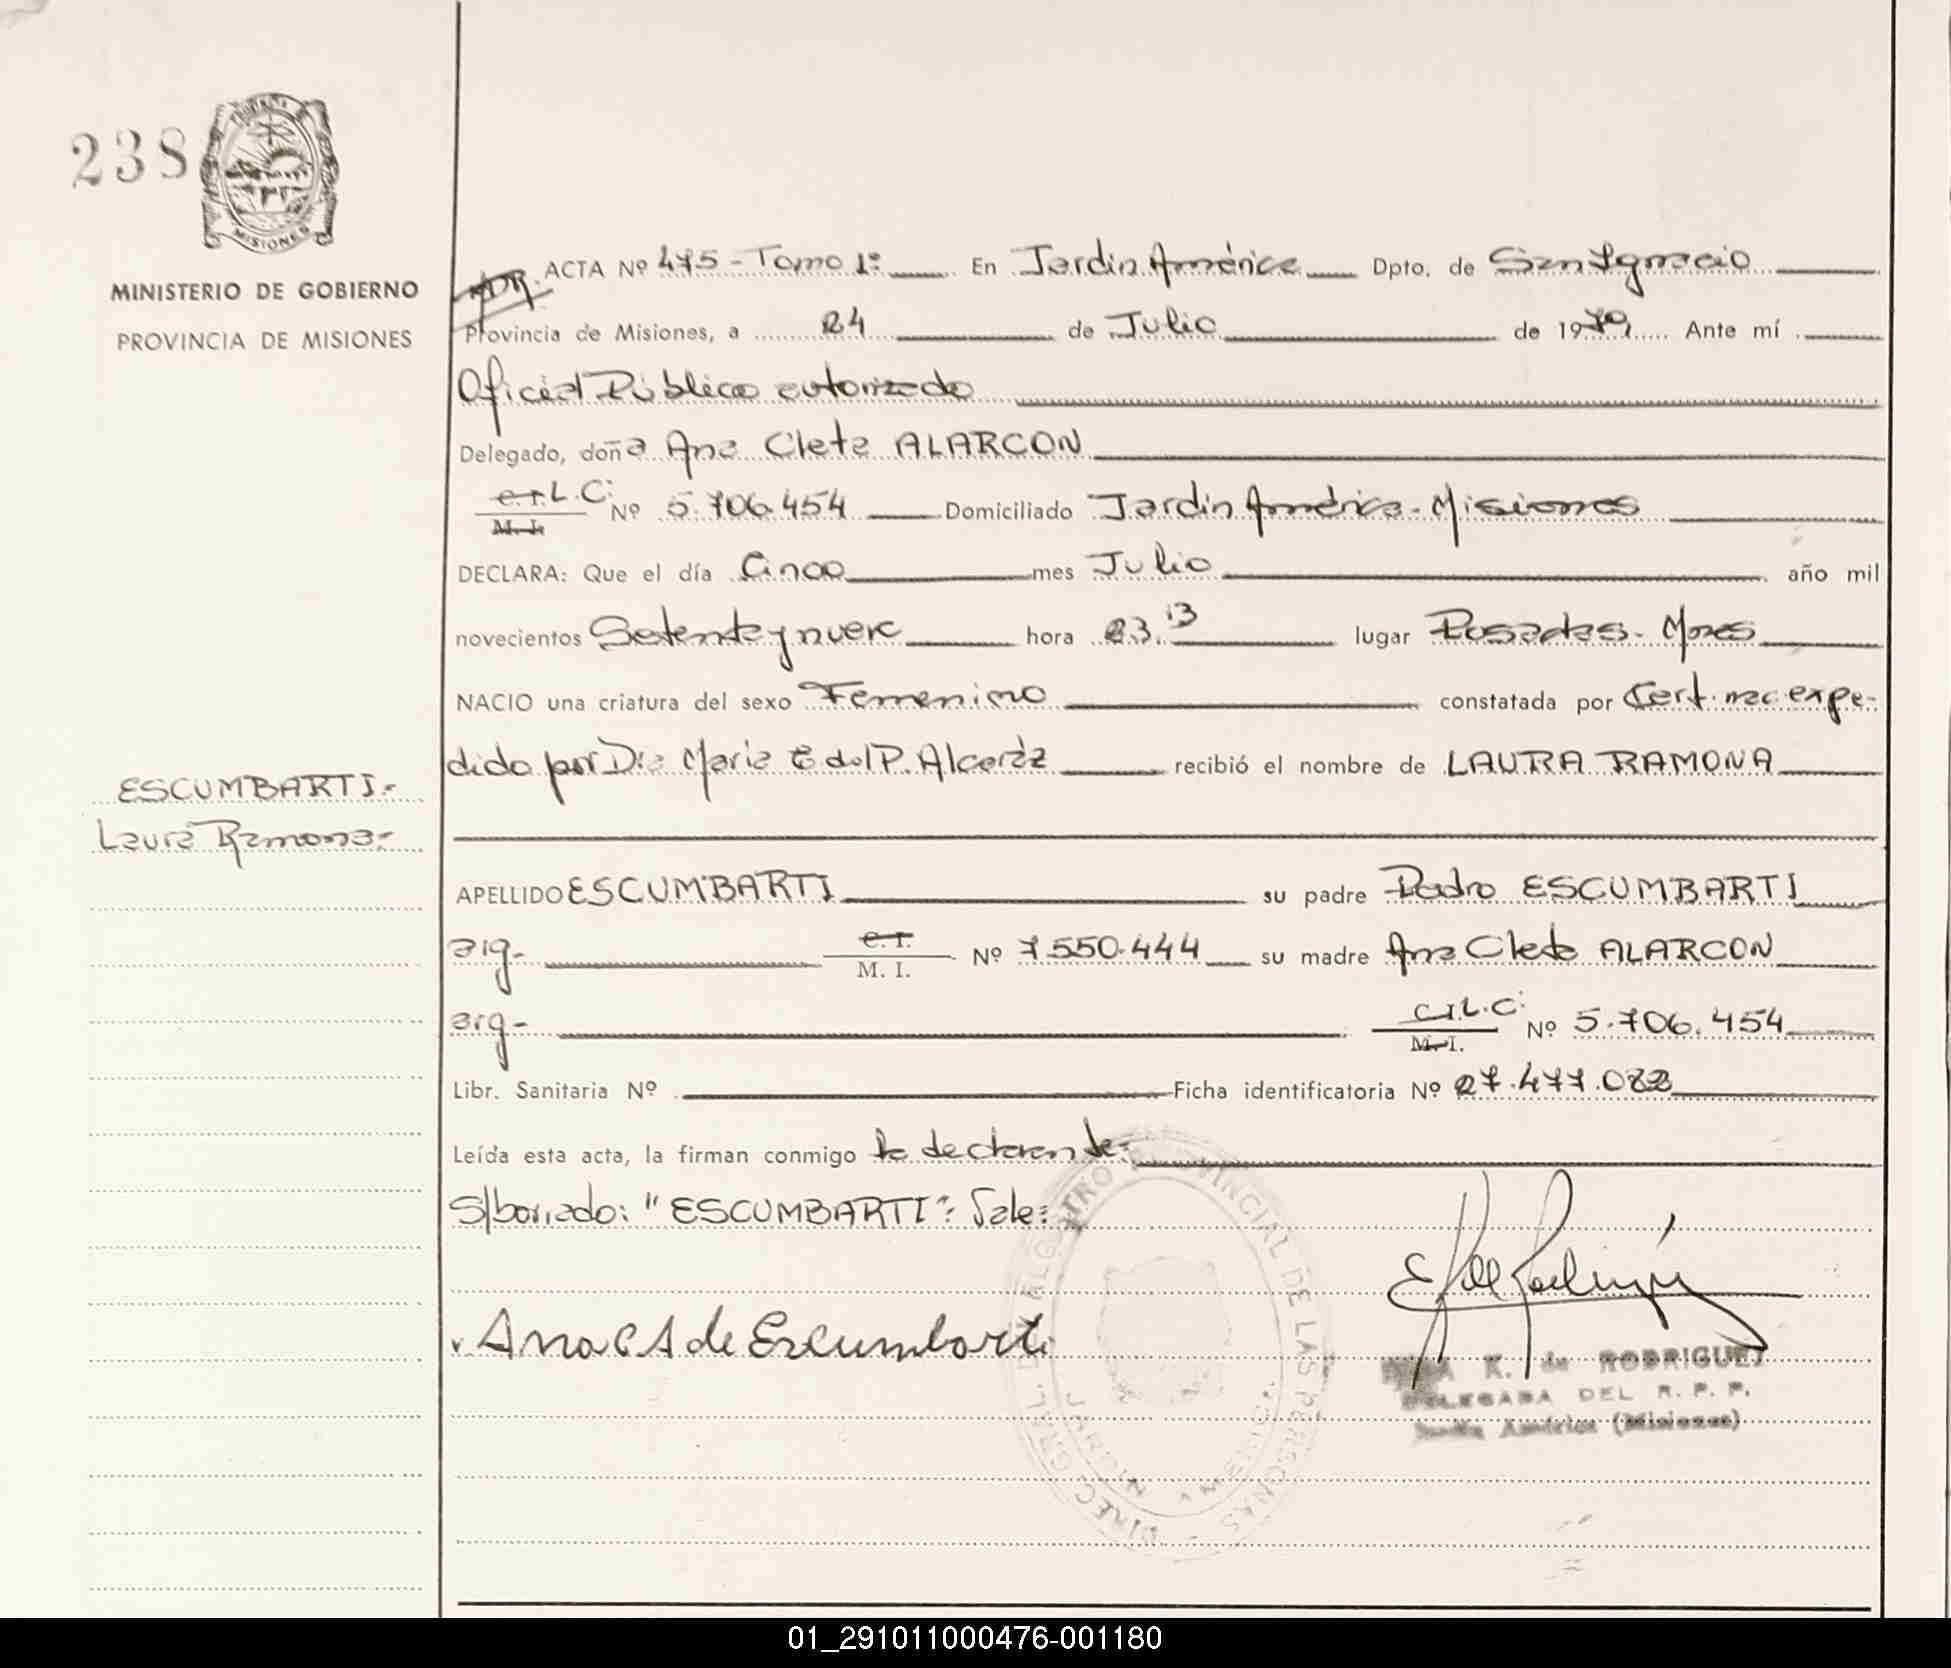 238
MISIONES
MINISTERIO DE GOBIERNO
PROVINCIA DE MISIONES
ACTA Nº 475 - Tomo 1º En Jardín América Dpto. de San Ignacio
Provincia de Misiones, a 24 de Julio de 1979 Ante mí
Oficial Público autorizado
Delegado, doña Ana Cleta ALARCON
C.I. L.C. Nº 5.706.454 Domiciliado Jardín América - Misiones
M. I.
DECLARA: Que el día Cinco mes Julio año mil
novecientos Setenta y nueve hora 23.13 lugar Posadas - Mnes
NACIO una criatura del sexo Femenino constatada por Cert. nac. expe-
dido por Dra María E del P. Alcaráz recibió el nombre de LAURA RAMONA
ESCUMBARTI-
Laura Ramona-
APELLIDO ESCUMBARTI su padre Pedro ESCUMBARTI
arg- C.I. Nº 7.550.444 su madre Ana Cleta ALARCON
M. I.
arg- C.I. L.C. Nº 5.706.454
M. I.
Libr. Sanitaria Nº Ficha identificatoria Nº 27.477.082
Leída esta acta, la firman conmigo la declarante-
S/borrado: "ESCUMBARTI": Vale:
Ana C A de Escumbarti
K. de RODRIGUEZ
DELEGADA DEL R. P. P.
Jardín América (Misiones)
01_291011000476-001180